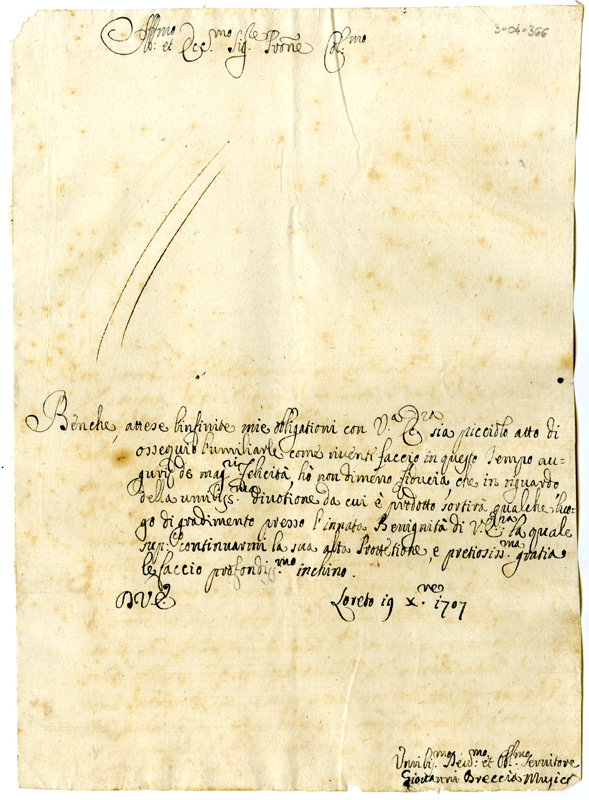 3-04-366
Ill.mo et Ecc.mo Sig.re P.rone Col.mo
Benche, attese l'infinite mie obligationi con V.a Ecc.za sia picciolo atto di
ossequio l'umiliarle come riventi faccio in questo tempo au-
gurij de mag.ri felicità, hò nondimeno fiducia che in riguardo
della umiliss.ma divotione da cui è prodotto sortirà qualche luo-
go di gradimento presso l'innata Benignità di V.Ecc.za la quale
sup.do continuarmi la sua alta Protettione, e pretiosiss.ma gratia
le faccio profondiss.mo inchino.
D V E.
Loreto 19 X.bre 1707
Umili.mo Dev.mo et Obl.mo Servitore
Giovanni Breccia Musico